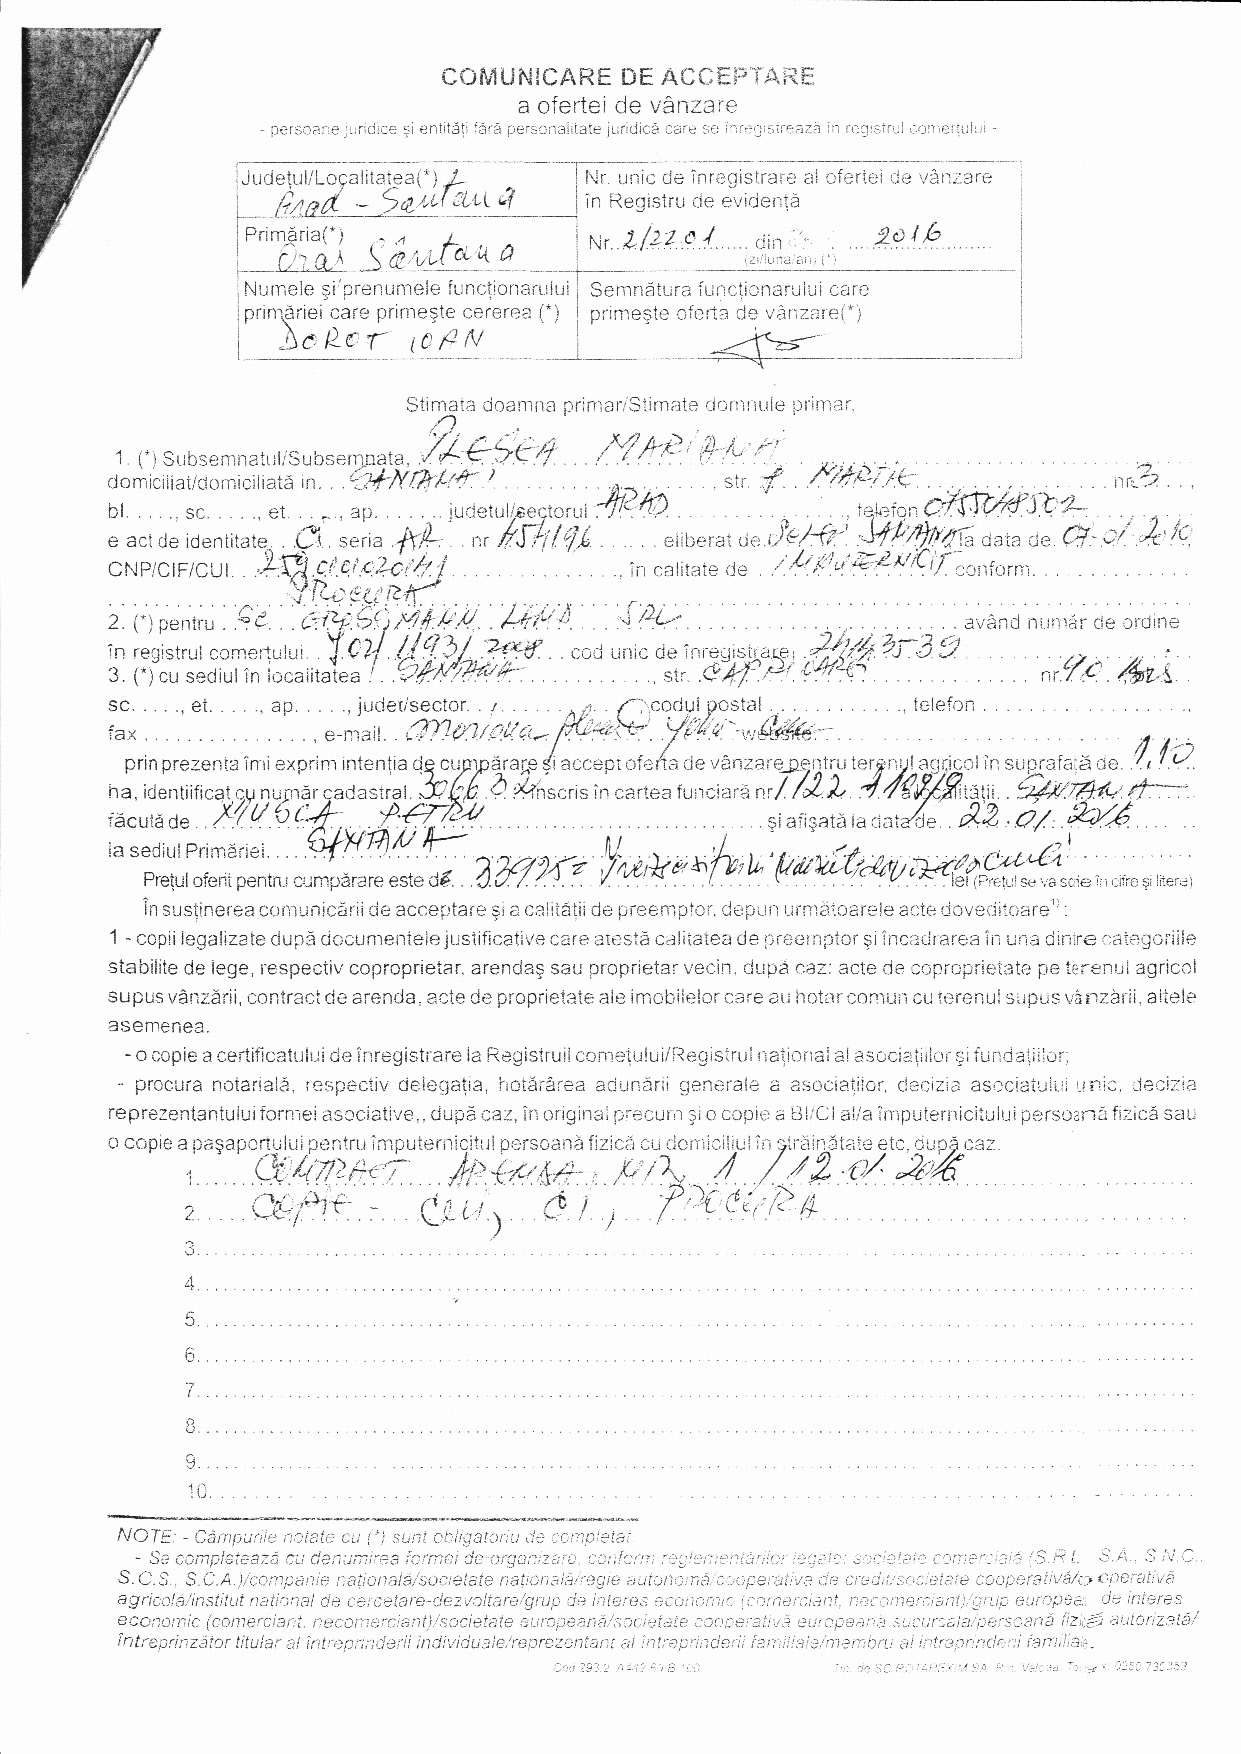 COMUNICARE DE ACCEPTARE
a ofertei de vânzare
- persoane juridice și entități fără personalitate juridică care se înregistrează in registrul comerțului -
Județul/Localitatea(*)
Arad - Santana
Nr. unic de înregistrare al ofertei de vânzare
în Registru de evidență
Primăria(*)
Oraș Sântana
Nr. 2/2201 din 2016
(zi/luna/an) (*)
Numele și prenumele funcționarului
primăriei care primește cererea (*)
DOROT IOAN
Semnătura funcționarului care
primește oferta de vânzare(*)
Stimata doamna primar/Stimate domnule primar,
1. (*) Subsemnatul/Subsemnata, PLESEA MARIANA
domiciliat/domiciliată in. SANTANA str. 1 MARTIE nr. 3
bl. , sc. , et. , ap. județul/sectorul ARAD telefon
e act de identitate CI seria AR nr eliberat de SANTANA la data de
CNP/CIF/CUI , în calitate de IMPUTERNICIT conform
PROCURA
2. (*) pentru SC LAND SRL având număr de ordine
în registrul comerțului cod unic de înregistrare
3. (*) cu sediul în localitatea SANTANA , str. nr. 40
sc. , et. , ap. , județ/sector. codul poștal , telefon
fax , e-mail website
prin prezenta îmi exprim intenția de cumpărare și accept oferta de vânzare pentru terenul agricol în suprafață de 1,10
ha, identificat cu număr cadastral inscris în cartea funciară nr a localității SANTANA
făcută de MUSCA PETRU și afișată la data de 22.01.2016
la sediul Primăriei SANTANA
Prețul oferit pentru cumpărare este de lei (Prețul se va scrie în cifre și litere)
În susținerea comunicării de acceptare și a calității de preemptor, depun următoarele acte doveditoare¹⁾:
1 - copii legalizate după documentele justificative care atestă calitatea de preemptor și încadrarea în una dintre categoriile
stabilite de lege, respectiv coproprietar, arendaș sau proprietar vecin, după caz: acte de coproprietate pe terenul agricol
supus vânzării, contract de arenda, acte de proprietate ale imobilelor care au hotar comun cu terenul supus vânzării, altele
asemenea.
- o copie a certificatului de înregistrare la Registrull comețului/Registrul național al asociațiilor și fundațiilor;
- procura notarială, respectiv delegația, hotărârea adunării generale a asociaților, decizia asociatului unic, decizia
reprezentantului formei asociative,, după caz, în original precum și o copie a BI/CI al/a împuternicitului persoană fizică sau
o copie a pașaportului pentru împuternicitul persoană fizică cu domiciliul în străinătate etc, după caz.
1. CONTRACT ARENDA, NR. 1 / 12.01.2016
2. COPIE - CUI, CI, PROCURA
3.
4.
5.
6.
7.
8.
9.
10.
NOTE: - Câmpurile notate cu (*) sunt obligatoriu de completat.
- Se completează cu denumirea formei de organizare, conform reglementărilor legale: societate comercială (S.R.L. S.A., S.N.C.,
S.C.S., S.C.A.)/companie națională/societate națională/regie autonomă/cooperativa de credit/societate cooperativă/cooperativă
agricola/institut național de cercetare-dezvoltare/grup de interes economic (comerciant, necomerciant)/grup european de interes
economic (comerciant, necomerciant)/societate europeană/societate cooperativă europeană sucursala/persoană fizică autorizată/
întreprinzător titular al întreprinderii individuale/reprezentant al întreprinderii familiale/membru al întreprinderii familiale.